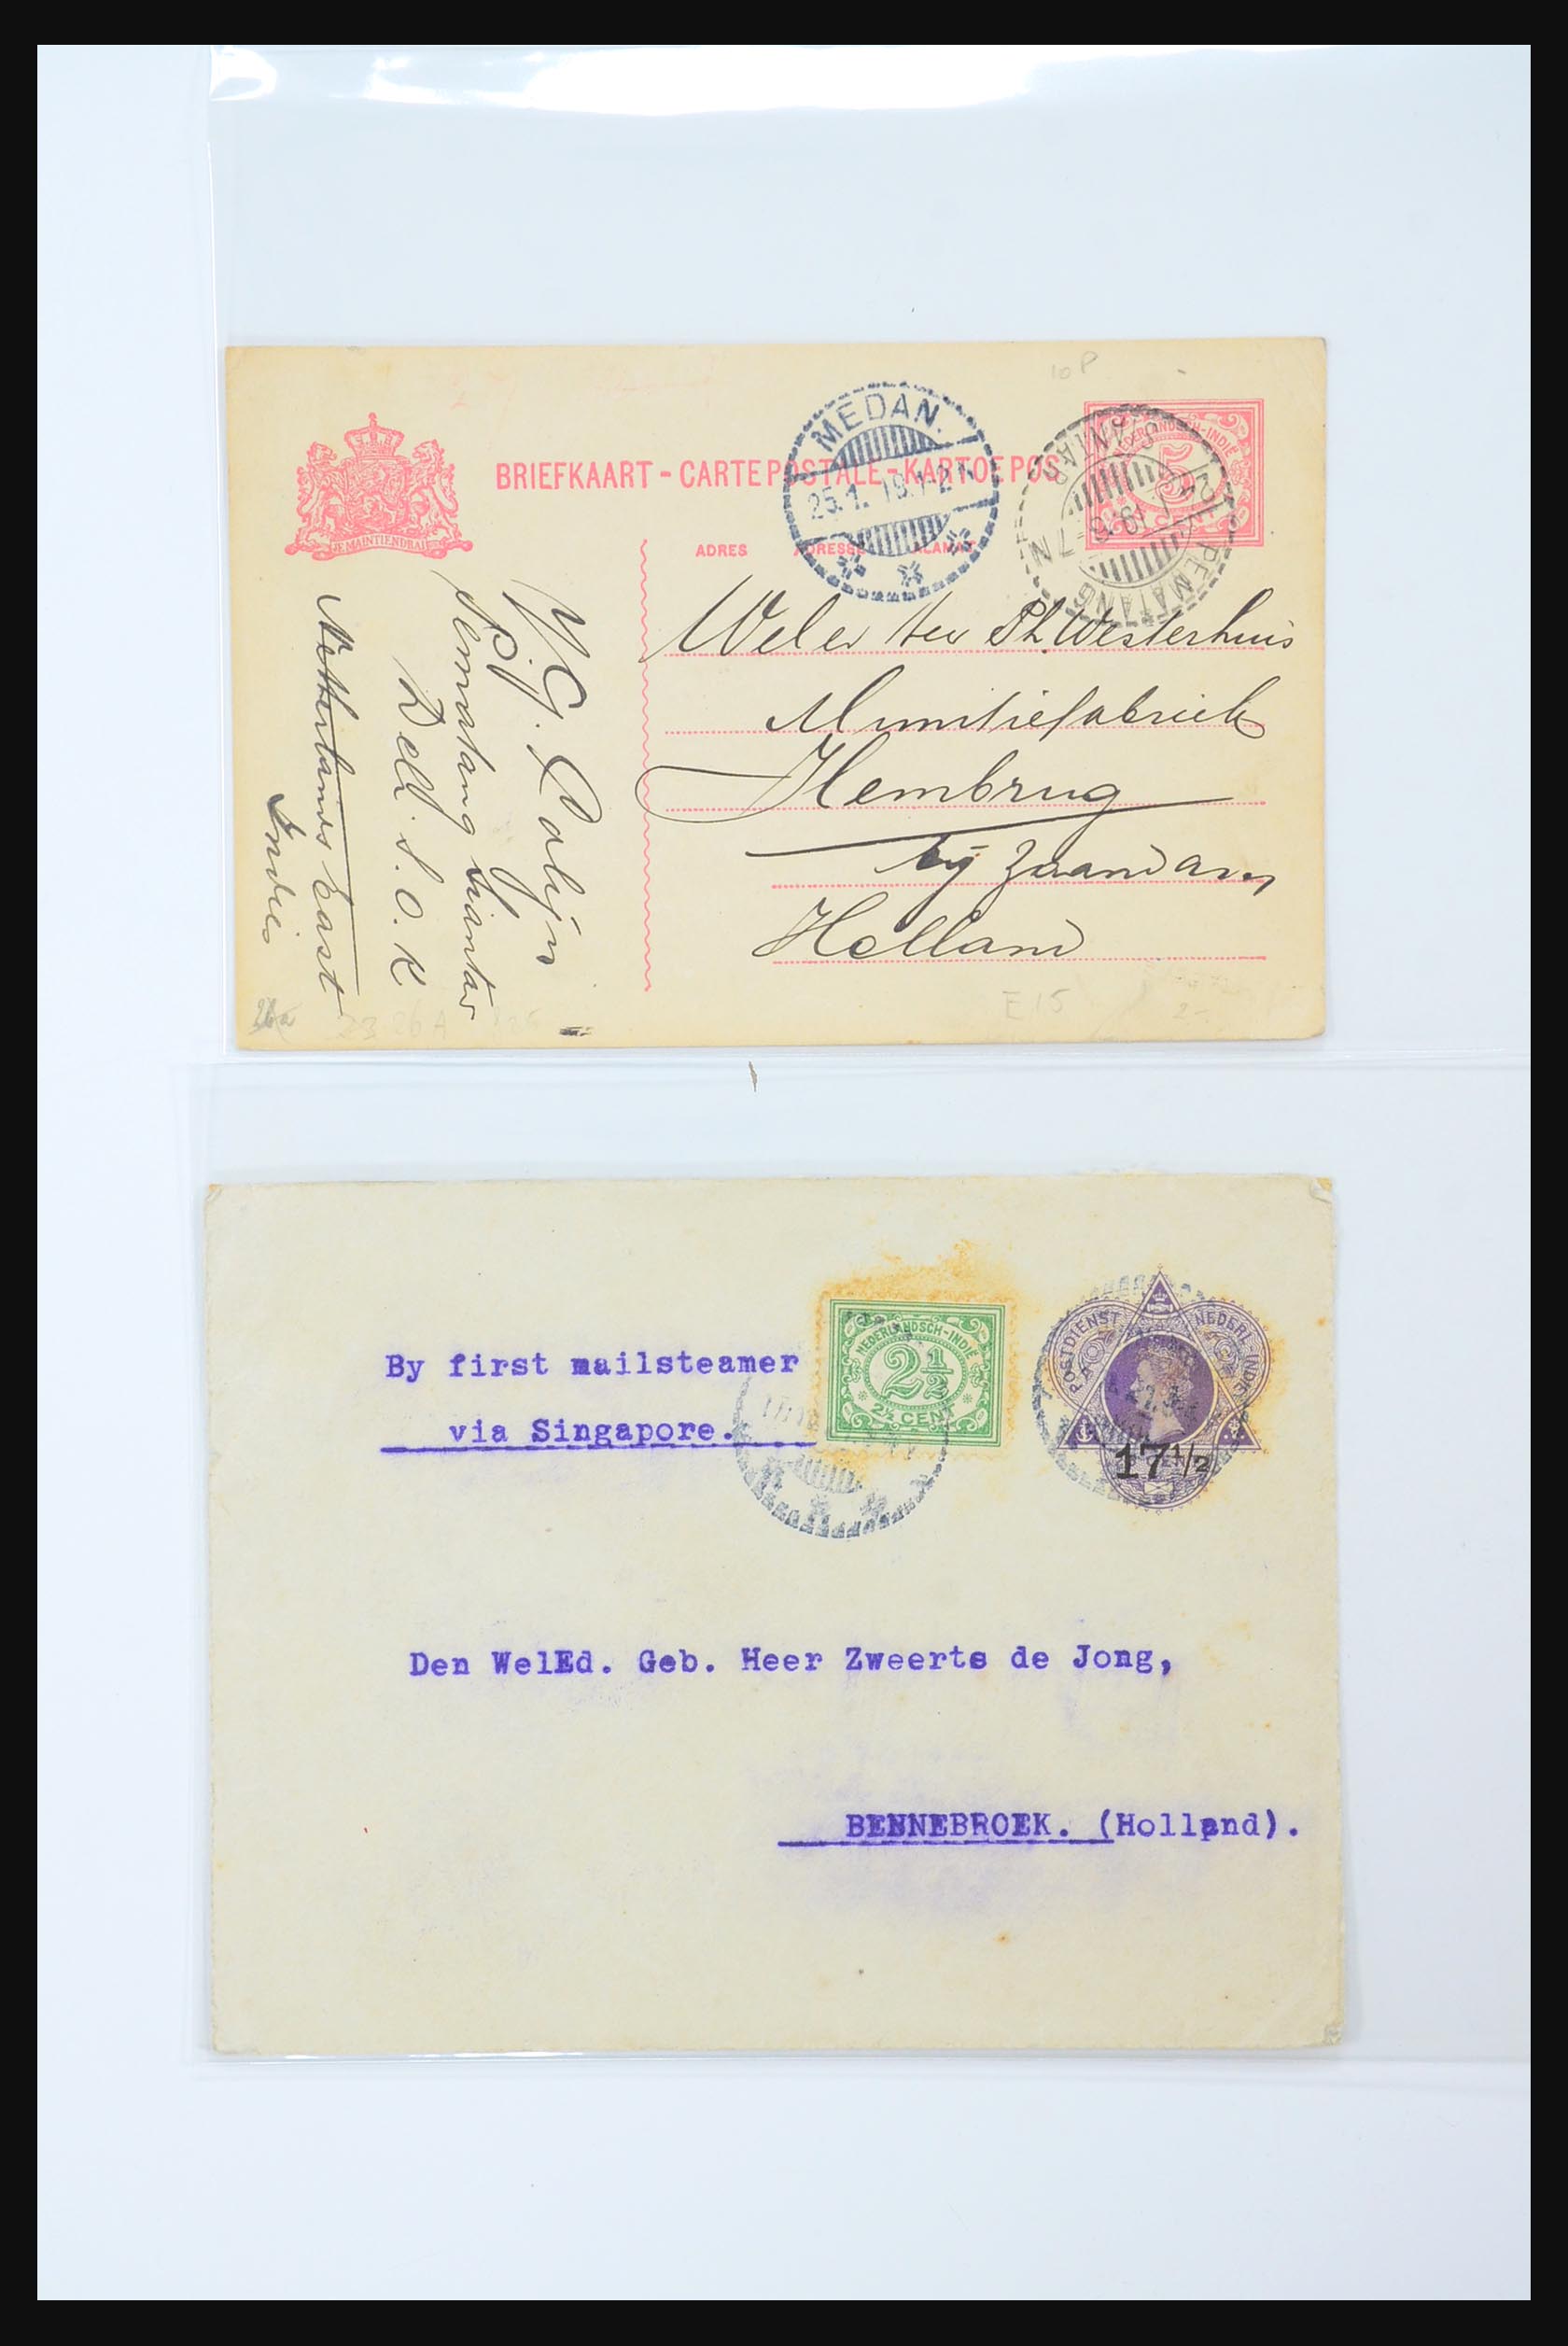 10 P
BRIEFKAART - CARTE POSTALE - KARTOE POS
JE MAINTIENDRAI
MEDAN.
25.1.19.1-2
NEDERLANDSCH-INDIE
5
CENT
PEMATANG
SIANTAR
ADRES ADRESSE ALAMAT
Ph. Westerhuis
Munitiefabriek
Hembrug
bij Zaandam
Holland
Pematang Siantar
Deli. S.O.K
Netherlands East
Indies
26a
23 26A
E15
By first mailsteamer
via Singapore.
NEDERLANDSCH-INDIE
2½
2½ CENT
POSTDIENST
NEDERL-INDIE
17 1/2
Den WelEd. Geb. Heer Zweerts de Jong,
BENNEBROEK. (Holland).